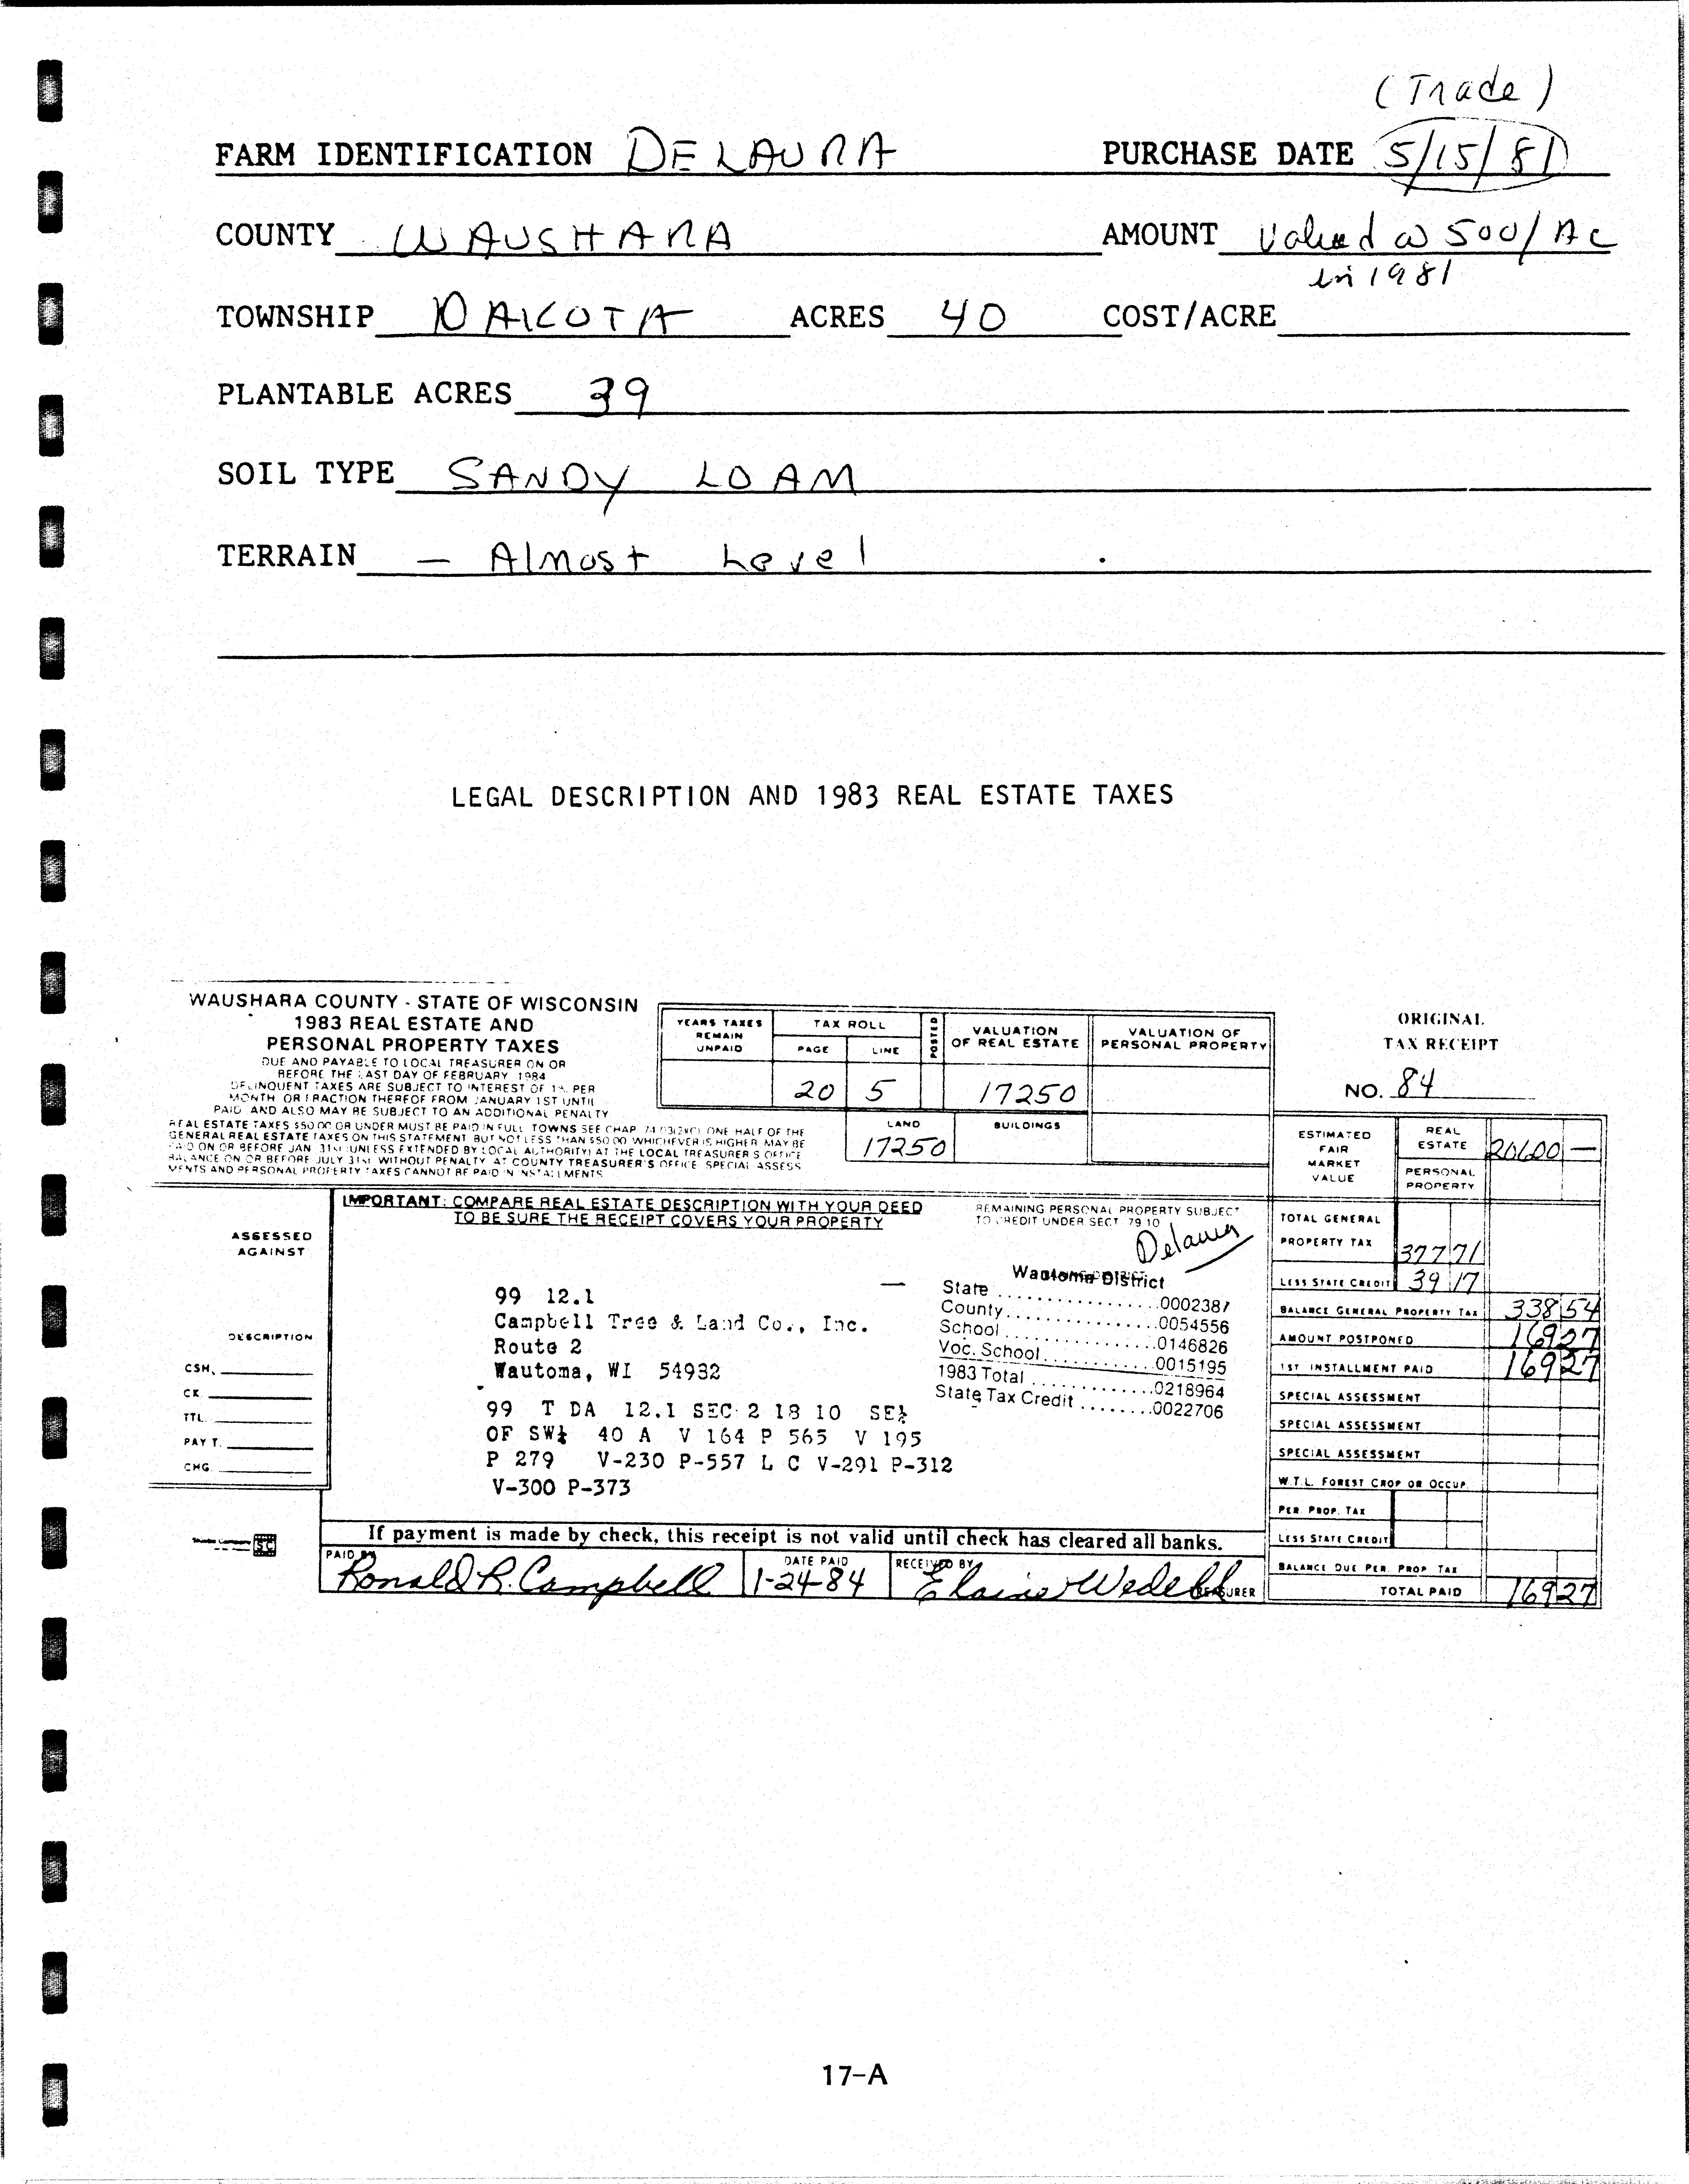 (Trade)
FARM IDENTIFICATION DELAURA PURCHASE DATE 5/15/81
COUNTY WAUSHARA AMOUNT Valued @ 500/Ac
in 1981
TOWNSHIP DAKOTA ACRES 40 COST/ACRE
PLANTABLE ACRES 39
SOIL TYPE SANDY LOAM
TERRAIN — Almost Level
LEGAL DESCRIPTION AND 1983 REAL ESTATE TAXES
WAUSHARA COUNTY - STATE OF WISCONSIN
1983 REAL ESTATE AND
PERSONAL PROPERTY TAXES
DUE AND PAYABLE TO LOCAL TREASURER ON OR
BEFORE THE LAST DAY OF FEBRUARY 1984
DELINQUENT TAXES ARE SUBJECT TO INTEREST OF 1% PER
MONTH OR FRACTION THEREOF FROM JANUARY 1ST UNTIL
PAID AND ALSO MAY BE SUBJECT TO AN ADDITIONAL PENALTY
REAL ESTATE TAXES $50.00 OR UNDER MUST BE PAID IN FULL TOWNS SEE CHAP ONE HALF OF THE
GENERAL REAL ESTATE TAXES ON THIS STATEMENT BUT NOT LESS THAN $50.00 WHICHEVER IS HIGHER MAY BE
PAID ON OR BEFORE JAN 31st (UNLESS EXTENDED BY LOCAL AUTHORITY) AT THE LOCAL TREASURER'S OFFICE
BALANCE ON OR BEFORE JULY 31st WITHOUT PENALTY AT COUNTY TREASURER'S OFFICE SPECIAL ASSESS
MENTS AND PERSONAL PROPERTY TAXES CANNOT BE PAID IN INSTALLMENTS
YEARS TAXES
REMAIN
UNPAID
TAX ROLL
PAGE LINE
POSTED
VALUATION
OF REAL ESTATE
VALUATION OF
PERSONAL PROPERTY
20 5 17250
LAND BUILDINGS
17250
ORIGINAL
TAX RECEIPT
NO. 84
ESTIMATED
FAIR
MARKET
VALUE
REAL
ESTATE 20600 —
PERSONAL
PROPERTY
IMPORTANT: COMPARE REAL ESTATE DESCRIPTION WITH YOUR DEED
TO BE SURE THE RECEIPT COVERS YOUR PROPERTY
REMAINING PERSONAL PROPERTY SUBJECT
TO CREDIT UNDER SECT 79.10
Delaura
ASSESSED
AGAINST
DESCRIPTION
CSH.
CK
TTL.
PAY T.
CHG.
99 12.1
Campbell Tree & Land Co., Inc.
Route 2
Wautoma, WI 54982
99 T DA 12.1 SEC 2 18 10 SE¼
OF SW¼ 40 A V 164 P 565 V 195
P 279 V-230 P-557 L C V-291 P-312
V-300 P-373
Wautoma District
State .0002387
County .0054556
School .0146826
Voc. School .0015195
1983 Total .0218964
State Tax Credit .0022706
TOTAL GENERAL
PROPERTY TAX 377 71
LESS STATE CREDIT 39 17
BALANCE GENERAL PROPERTY TAX 338 54
AMOUNT POSTPONED 169 27
1ST INSTALLMENT PAID 169 27
SPECIAL ASSESSMENT
SPECIAL ASSESSMENT
SPECIAL ASSESSMENT
W.T.L. FOREST CROP OR OCCUP.
PER. PROP. TAX
LESS STATE CREDIT
BALANCE DUE PER. PROP TAX
TOTAL PAID 169 27
If payment is made by check, this receipt is not valid until check has cleared all banks.
PAID BY Ronald R. Campbell DATE PAID 1-24-84 RECEIVED BY Elaine TREASURER
17-A